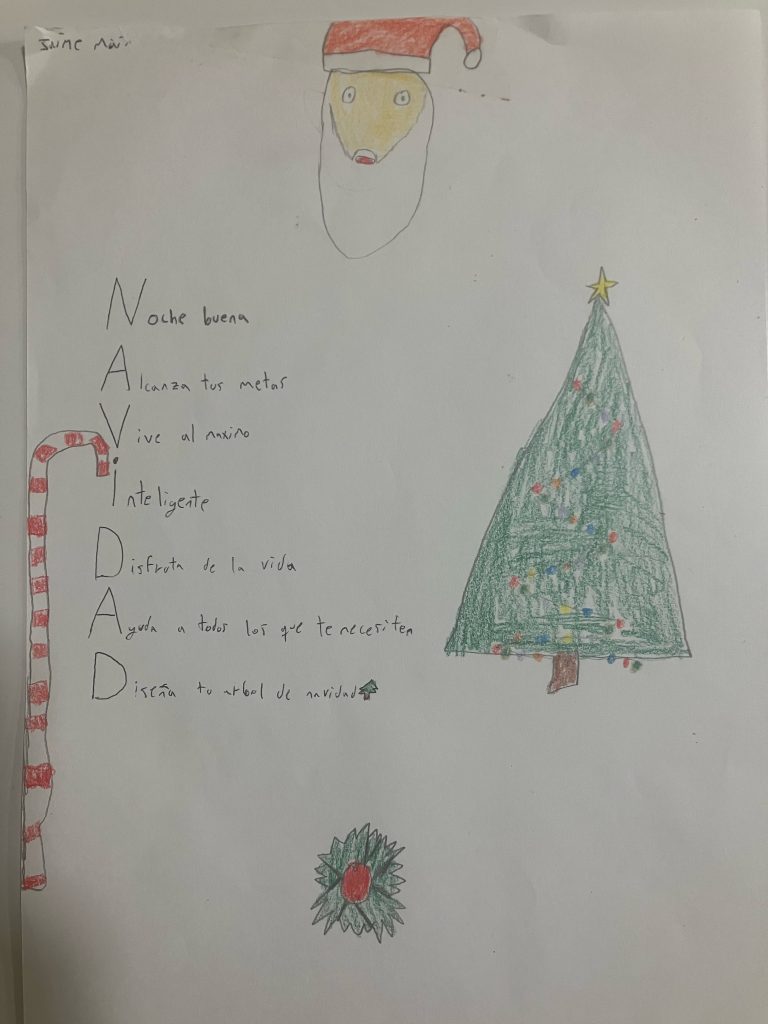 Jaime
Noche buena
Alcanza tus metas
Vive al maximo
inteligente
Disfruta de la vida
Ayuda a todos los que te necesiten
Diseña tu arbol de navidad